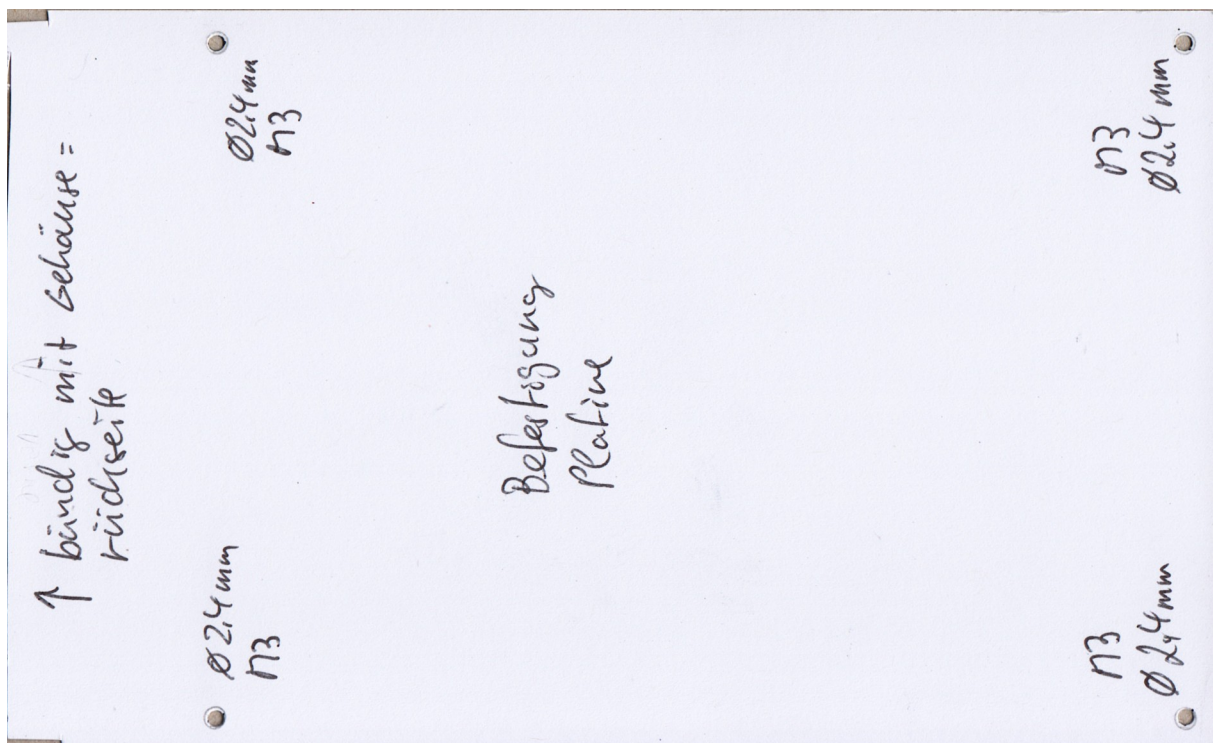 ↑ bündig mit Gehäuse=
rückseite
Ø2,4mm
M3
Ø2,4mm
M3
Befestigung
Platine
M3
Ø2,4mm
M3
Ø2,4mm